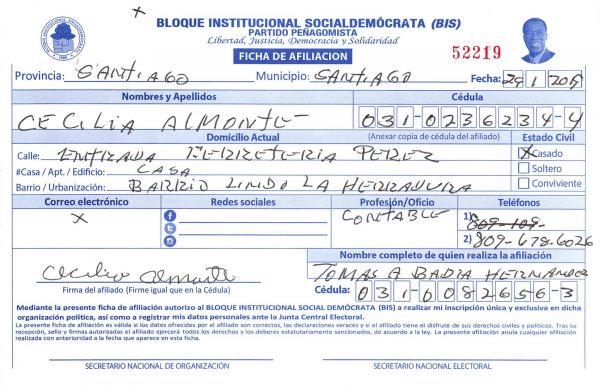 x
BLOQUE INSTITUCIONAL SOCIALDEMÓCRATA (BIS)
PARTIDO PEÑAGOMISTA
Libertad, Justicia, Democracia y Solidaridad
FICHA DE AFILIACION
52219
Provincia: SANTIAGO Municipio: SANTIAGO Fecha: 29/1/2019
Nombres y Apellidos Cédula
CECILIA ALMONTE 031-0236234-4
Domicilio Actual (Anexar copia de cédula del afiliado) Estado Civil
Calle: ENTRADA FERRETERIA PEREZ X Casado
#Casa / Apt. / Edificio: CASA Soltero
Barrio / Urbanización: BARRIO LINDO LA HERRADURA Conviviente
Correo electrónico Redes sociales Profesión/Oficio Teléfonos
X CONTABLE 1) 809-109-
2) 809-678-6026
Nombre completo de quien realiza la afiliación
Cecilia Almonte TOMAS A BADIA HERNANDEZ
Firma del afiliado (Firme igual que en la Cédula) Cédula: 031-0082656-3
Mediante la presente ficha de afiliación autorizo al BLOQUE INSTITUCIONAL SOCIAL DEMÓCRATA (BIS) a realizar mi inscripción única y exclusiva en dicha
organización política, así como a registrar mis datos personales ante la Junta Central Electoral.
La presente ficha de afiliación es válida si los datos ofrecidos por el afiliado son correctos, las declaraciones veraces y si el afiliado tiene el disfrute de sus derechos civiles y políticos. Tras su
recepción, sello y firmas autorizadas el afiliado ejercerá todos los derechos y los deberes estatutariamente sancionados, de acuerdo a la ley. La presente afiliación anula cualquier afiliación
realizada con anterioridad a la fecha que aparece en esta ficha.
SECRETARIO NACIONAL DE ORGANIZACIÓN SECRETARIO NACIONAL ELECTORAL